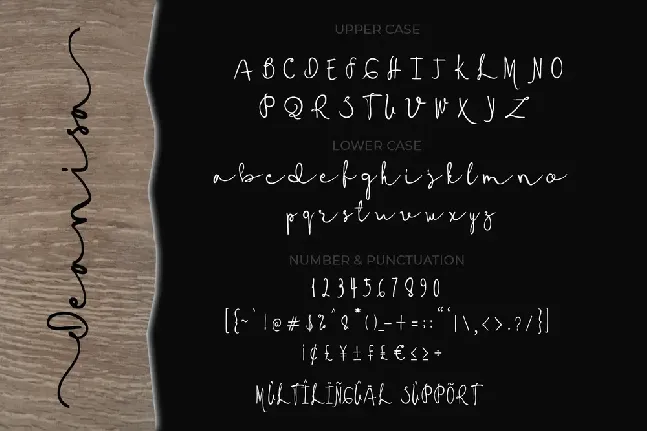 Deamisa
UPPER CASE
A B C D E F G H I J K L M N O
P Q R S T U V W X Y Z
LOWER CASE
a b c d e f g h i j k l m n o
p q r s t u v w x y z
NUMBER & PUNCTUATION
1 2 3 4 5 6 7 8 9 0
MÛLTÎLÌÑGÜÃL SÙPPÕRT